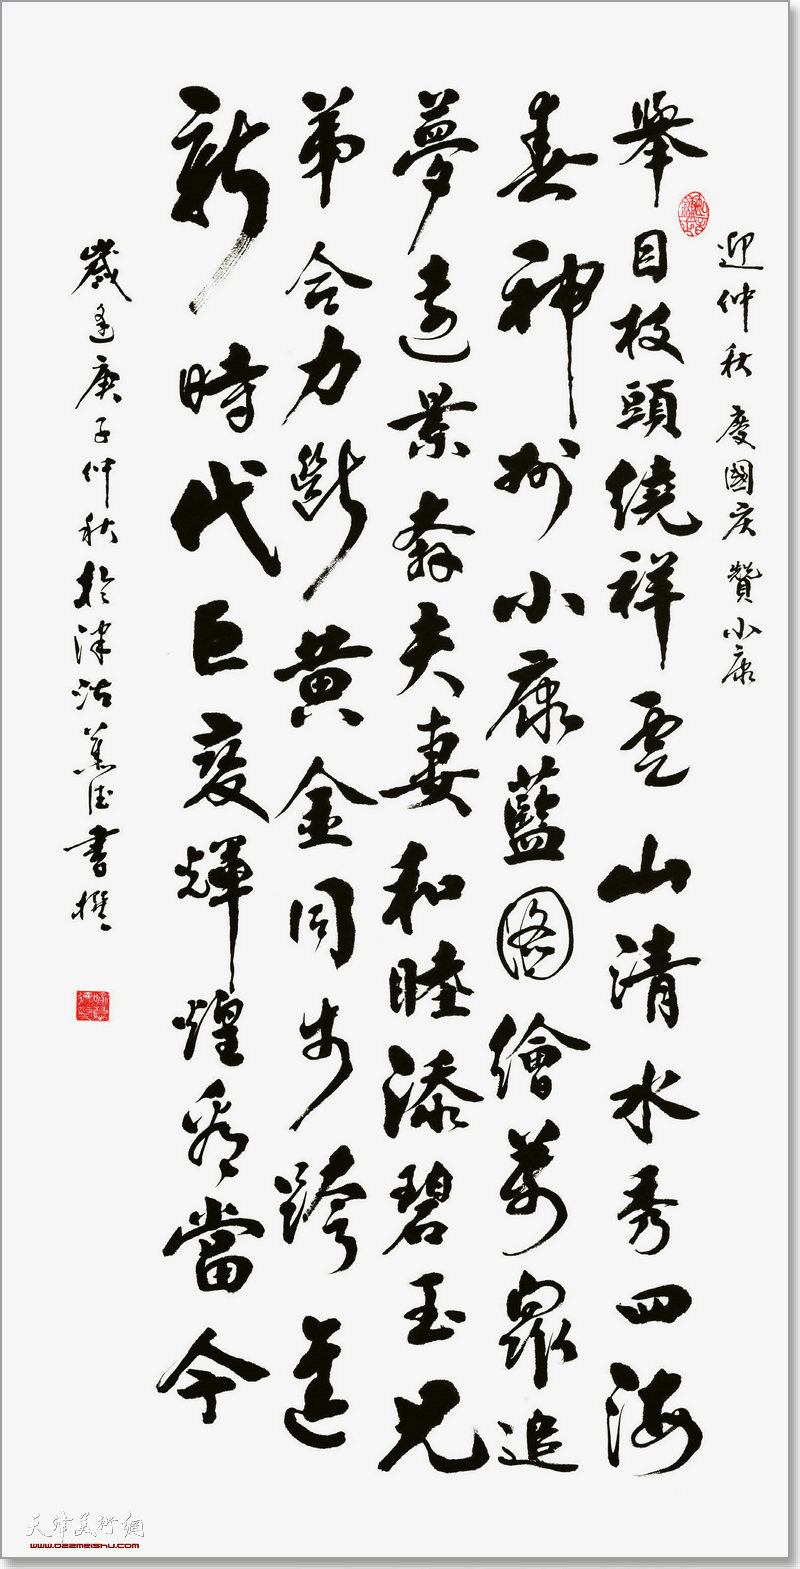 迎仲秋 慶國庆 贊小康
舉目枝頭繞祥雲山清水秀四海
春神州小康藍圖繪萬眾追
夢遠景奔夫妻和睦添碧玉兄
弟合力斷黃金同步跨進
新時代巨變輝煌看當今
歲逢庚子仲秋於津沽書撰
天津美術網
www.022meishu.com